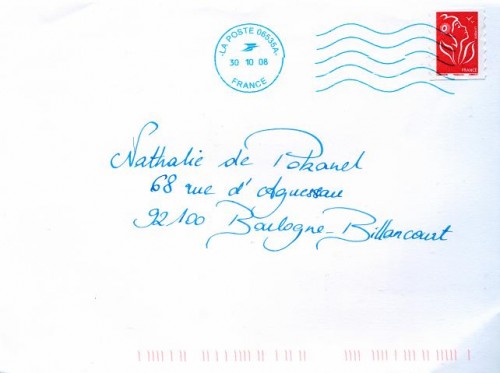 LA POSTE 06535A
30 10 06
FRANCE
FRANCE
Nathalie de Pokanel
68 rue d'Aguesseau
92100 Boulogne-Billancourt